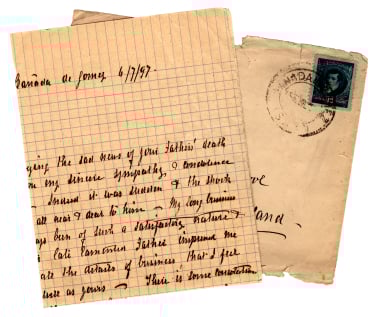 Cañada de Gomez 6/7/97.
ying the sad news of your Father's death
my sincere sympathy & condolence
Indeed it was sudden & the shock
all near & dear to him — My long business
ays been of such a satisfactory nature &
late Esmonten Father impressed me
all the details of business that I feel
as yours — There is some consolation
CAÑADA
land